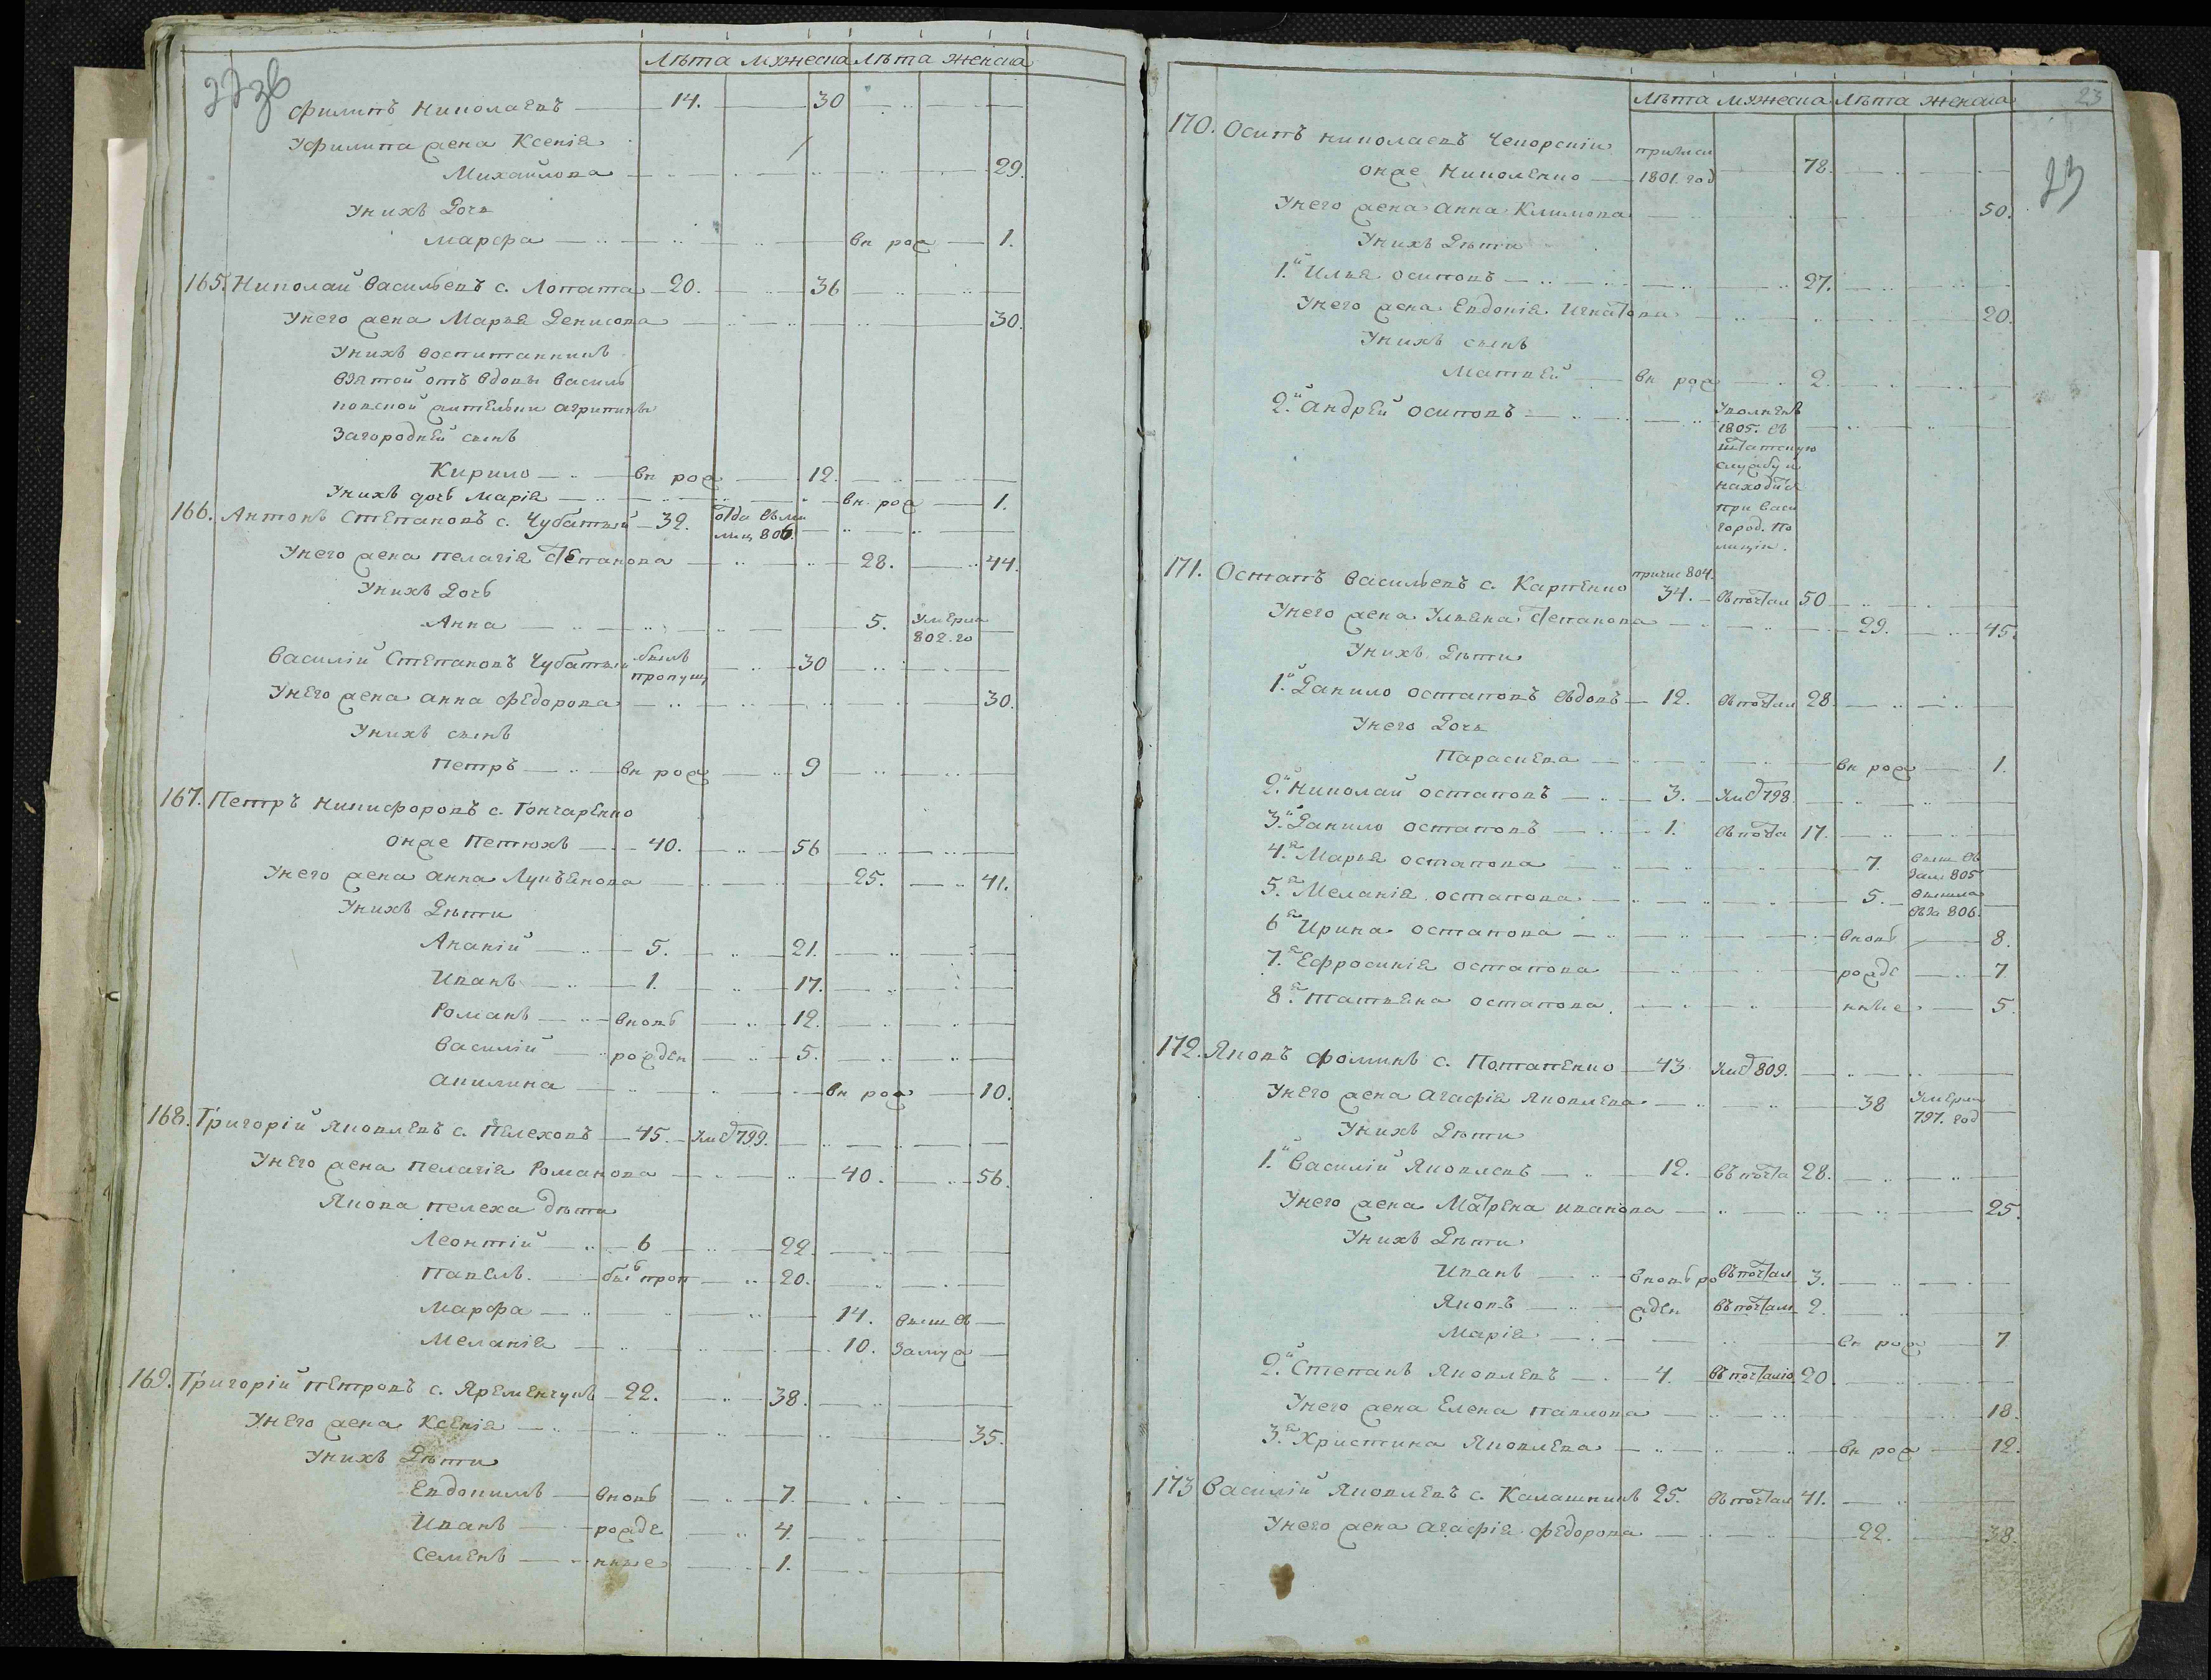 22 зв
Лѣта мужеска Лѣта женска
Филипъ Николаевъ — 14. — 30
У Филипа жена Ксенія
Михайлова — 29.
У нихъ дочь
Марфа — вн рож — 1.
165. Николай Васильевъ с. Лопата — 20. — 36
У него жена Марья Денисова — 30.
У нихъ воспитанникъ
взятой отъ вдовы Василь
ковской жительки Агрипины
Загородней сынъ
Кирило — вн рож — 12.
У нихъ дочь Марія — вн. рож — 1.
166. Антонъ Степановъ с. Чубатый — 32. отда въ ми
лиц 806.
У него жена Пелагія Степанова — 28. — 44.
У нихъ дочь
Анна — 5. умерла
802. го
Василій Степановъ Чубатый былъ
пропущ — 30
У него жена Анна Федорова — 30.
У нихъ сынъ
Петръ — вн рож — 9
167. Петръ Никифоровъ с. Гончаренко
онже Петюхъ — 40. — 56
У него жена Анна Лукъянова — 25. — 41.
У нихъ дѣти
Ананій — 5. — 21.
Иванъ — 1. — 17.
Романъ — вновь — 12.
Василій — рожден — 5.
Акилина — вн рож — 10.
168. Григорій Яковлевъ с. Пелеховъ — 45. — уме 799.
У него жена Пелагія Романова — 40. — 56.
Якова Пелеха дѣти
Леонтій — 6 — 22.
Павелъ. — былъ проп — 20.
Марфа — 14. выш въ
Меланія — 10. замуж
169. Григорій Петровъ с. Яременчукъ — 22. — 38.
У него жена Ксенія — 35.
У нихъ дѣти
Евдокимъ — вновь — 7.
Иванъ — рожде — 4.
Семенъ — нные — 1.
23
Лѣта мужеска Лѣта женска
23
170. Осипъ Николаевъ Чекорскій приписи
онже Николенко — 1801. год — 78.
У него жена Анна Климова — 50.
У нихъ дѣти
1.й Илья Осиповъ — 27.
У него жена Евдокія Игнатова — 20.
У нихъ сынъ
Матвей — вн рож — 2.
2.й Андрей Осиповъ — уволненъ
1805. въ
штатскую
службу и
находится
при Васи
город. по
лиціи.
171. Остапъ Васильевъ с. Карпенко причис 804.
34. — въ почтал 50
У него жена Ульяна Степанова — 29. — 45.
У нихъ дѣти
1.й Данило Остаповъ вдовъ — 12. въ почтал 28.
У него дочь
Параскева — вн рож — 1.
2.й Николай Остаповъ — 3. — уме 798.
3.й Данило Остаповъ — 1. въ почта 17.
4.я Марья Остапова — 7. выш въ
зам 805
5.я Меланія Остапова — 5. — вышла
въ за 806.
6.я Ирина Остапова — вновь — 8.
7.я Ефросинія Остапова — рожде — 7
8.я Татьяна Остапова. — нные — 5.
172. Яковъ Фоминъ с. Потапенко — 43 уме 809.
У него жена Агафія Яковлева — 38 умерла
797. год
У нихъ дѣти
1.й Василій Яковлевъ — 12. въ почта 28.
У него жена Матрена Иванова — 25.
У нихъ дѣти
Иванъ — вновь ро въ почтал 3.
Яковъ — жден въ почтал 2.
Марія — вн рож — 7
2.й Степанъ Яковлевъ — 4. въ почталіо 20
У него жена Елена Павлова — 18.
3.я Христина Яковлева — вн рож — 12.
173 Василій Яковлевъ с. Калашникъ 25. въ почтал 41.
У него жена Агафія Федорова — 22. — 38.